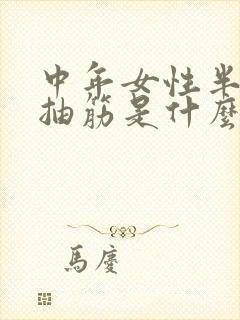 中年女性半
抽筋是什麼
馬慶